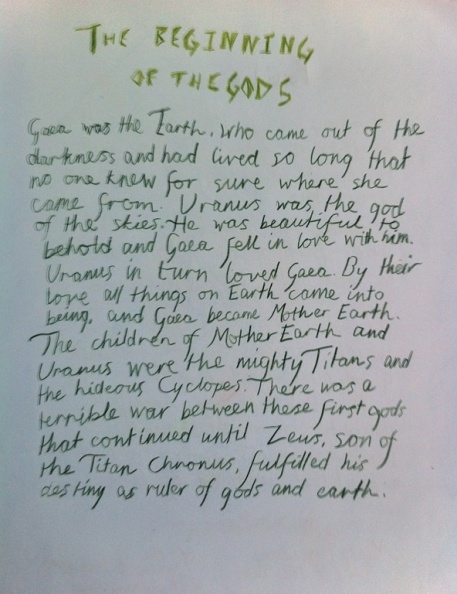 THE BEGINNING
OF THE GODS
Gaea was the Earth, who came out of the
darkness and had lived so long that
no one knew for sure where she
came from. Uranus was the god
of the skies. He was beautiful to
behold and Gaea fell in love with him.
Uranus in turn loved Gaea. By their
love all things on Earth came into
being, and Gaea became Mother Earth.
The children of Mother Earth and
Uranus were the mighty Titans and
the hideous Cyclopes. There was a
terrible war between these first gods
that continued until Zeus, son of
the Titan Chronus, fulfilled his
destiny as ruler of gods and earth.